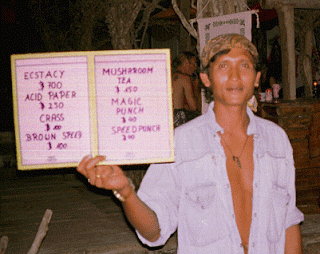 ECSTACY
฿ 700
ACID PAPER
฿ 250
CRASS
฿ 100
BROWN SPEED
฿ 100
MUSHRROOM
TEA
฿ 150
MAGIC
PUNCH
฿ 40
SPEED PUNCH
฿ 40